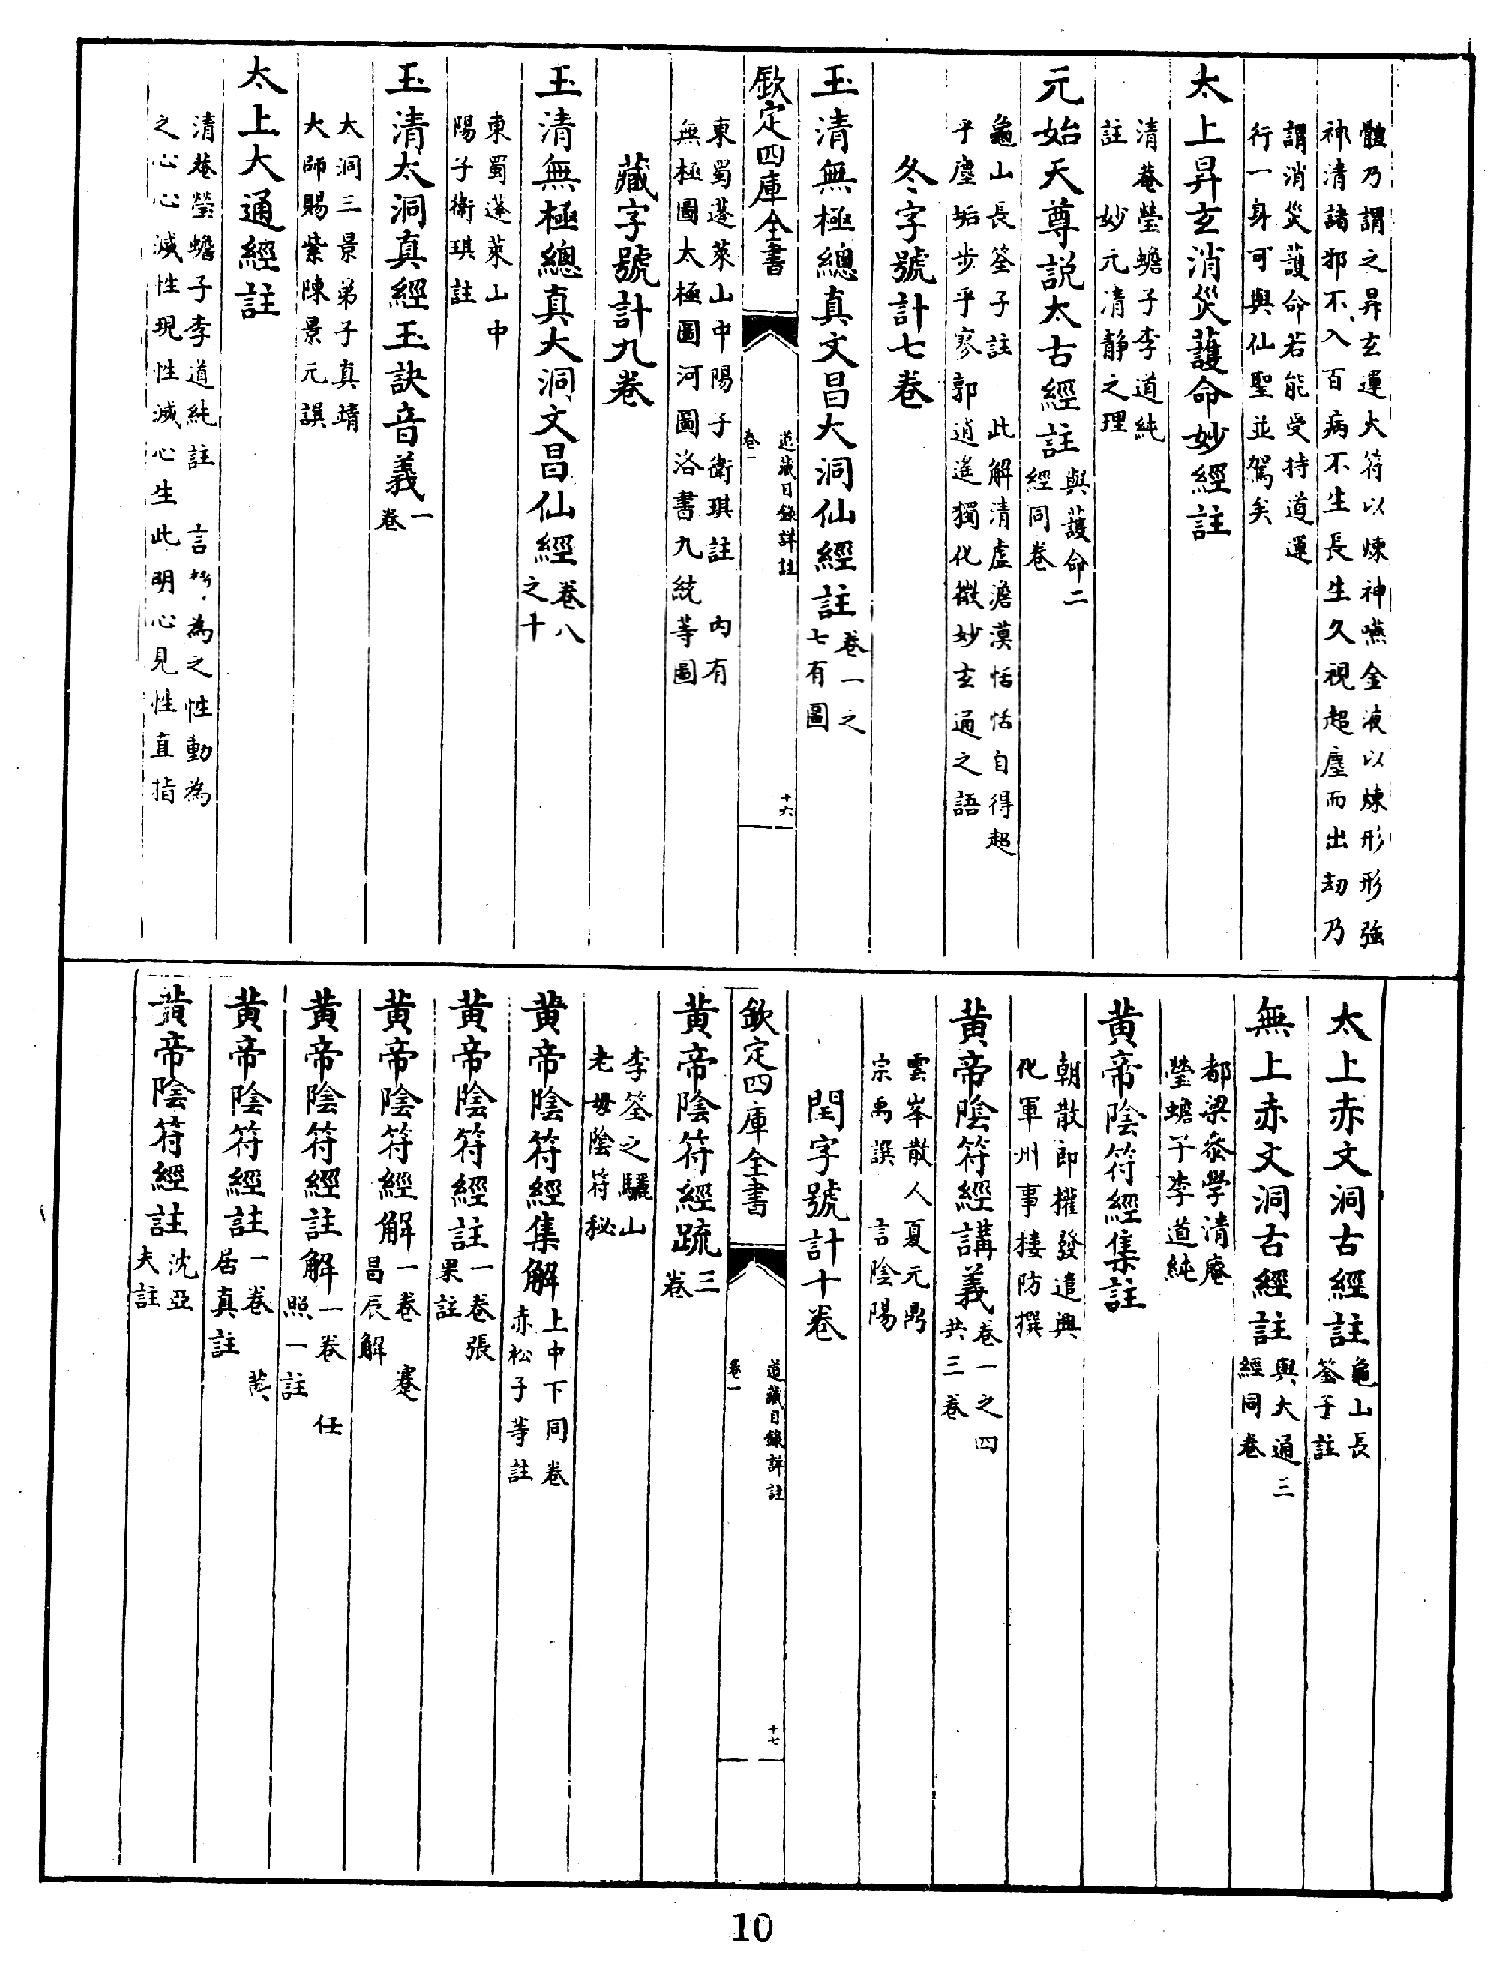 體乃謂之昇玄運大符以煉神嚥金液以煉形形強
神清諸邪不入百病不生長生久視超塵而出劫乃
謂消災護命若能受持道運
行一身可與仙聖並駕矣
太上昇玄消災護命妙經註
清菴瑩蟾子李道純
註　妙元清静之理
元始天尊說太古經註與護命二
經同卷
龜山長筌子註　此解清虛澹漠恬恬自得超
乎塵垢步乎寥郭逍遙獨化微妙玄通之語
冬字號計七卷
玉清無極總真文昌大洞仙經註卷一之
七有圖
欽定四庫全書
道藏目錄詳註
卷一
十六
東蜀蓬萊山中陽子衛琪註　內有
無極圖太極圖河圖洛書九統等圖
藏字號計九卷
玉清無極總真大洞文昌仙經卷八
之十
東蜀蓬萊山中
陽子衛琪註
玉清大洞真經玉訣音義一
卷
大洞三景弟子真靖
大師賜紫陳景元譔
太上大通經註
清菴瑩蟾子李道純註　言為之性動為
之心心滅性現性滅心生此明心見性直指
太上赤文洞古經註龜山長
筌子註
無上赤文洞古經註與大通三
經同卷
都梁叅學清庵
瑩蟾子李道純
黃帝陰符經集註
朝散郎權發遣興
化軍州事樓防撰
黃帝陰符經講義卷一之四
共三卷
雲峯散人夏元鼎
宗禹譔　言陰陽
閏字號計十卷
欽定四庫全書
道藏目錄詳註
卷一
十七
黃帝陰符經疏三
卷
李筌之驪山
老母陰符秘
黃帝陰符經集解上中下同卷
赤松子等註
黃帝陰符經註一卷張
果註
黃帝陰符經解一卷　蹇
昌辰解
黃帝陰符經註解一卷　任
照一註
黃帝陰符經註一卷　黃
居真註
黃帝陰符經註沈亞
夫註
10